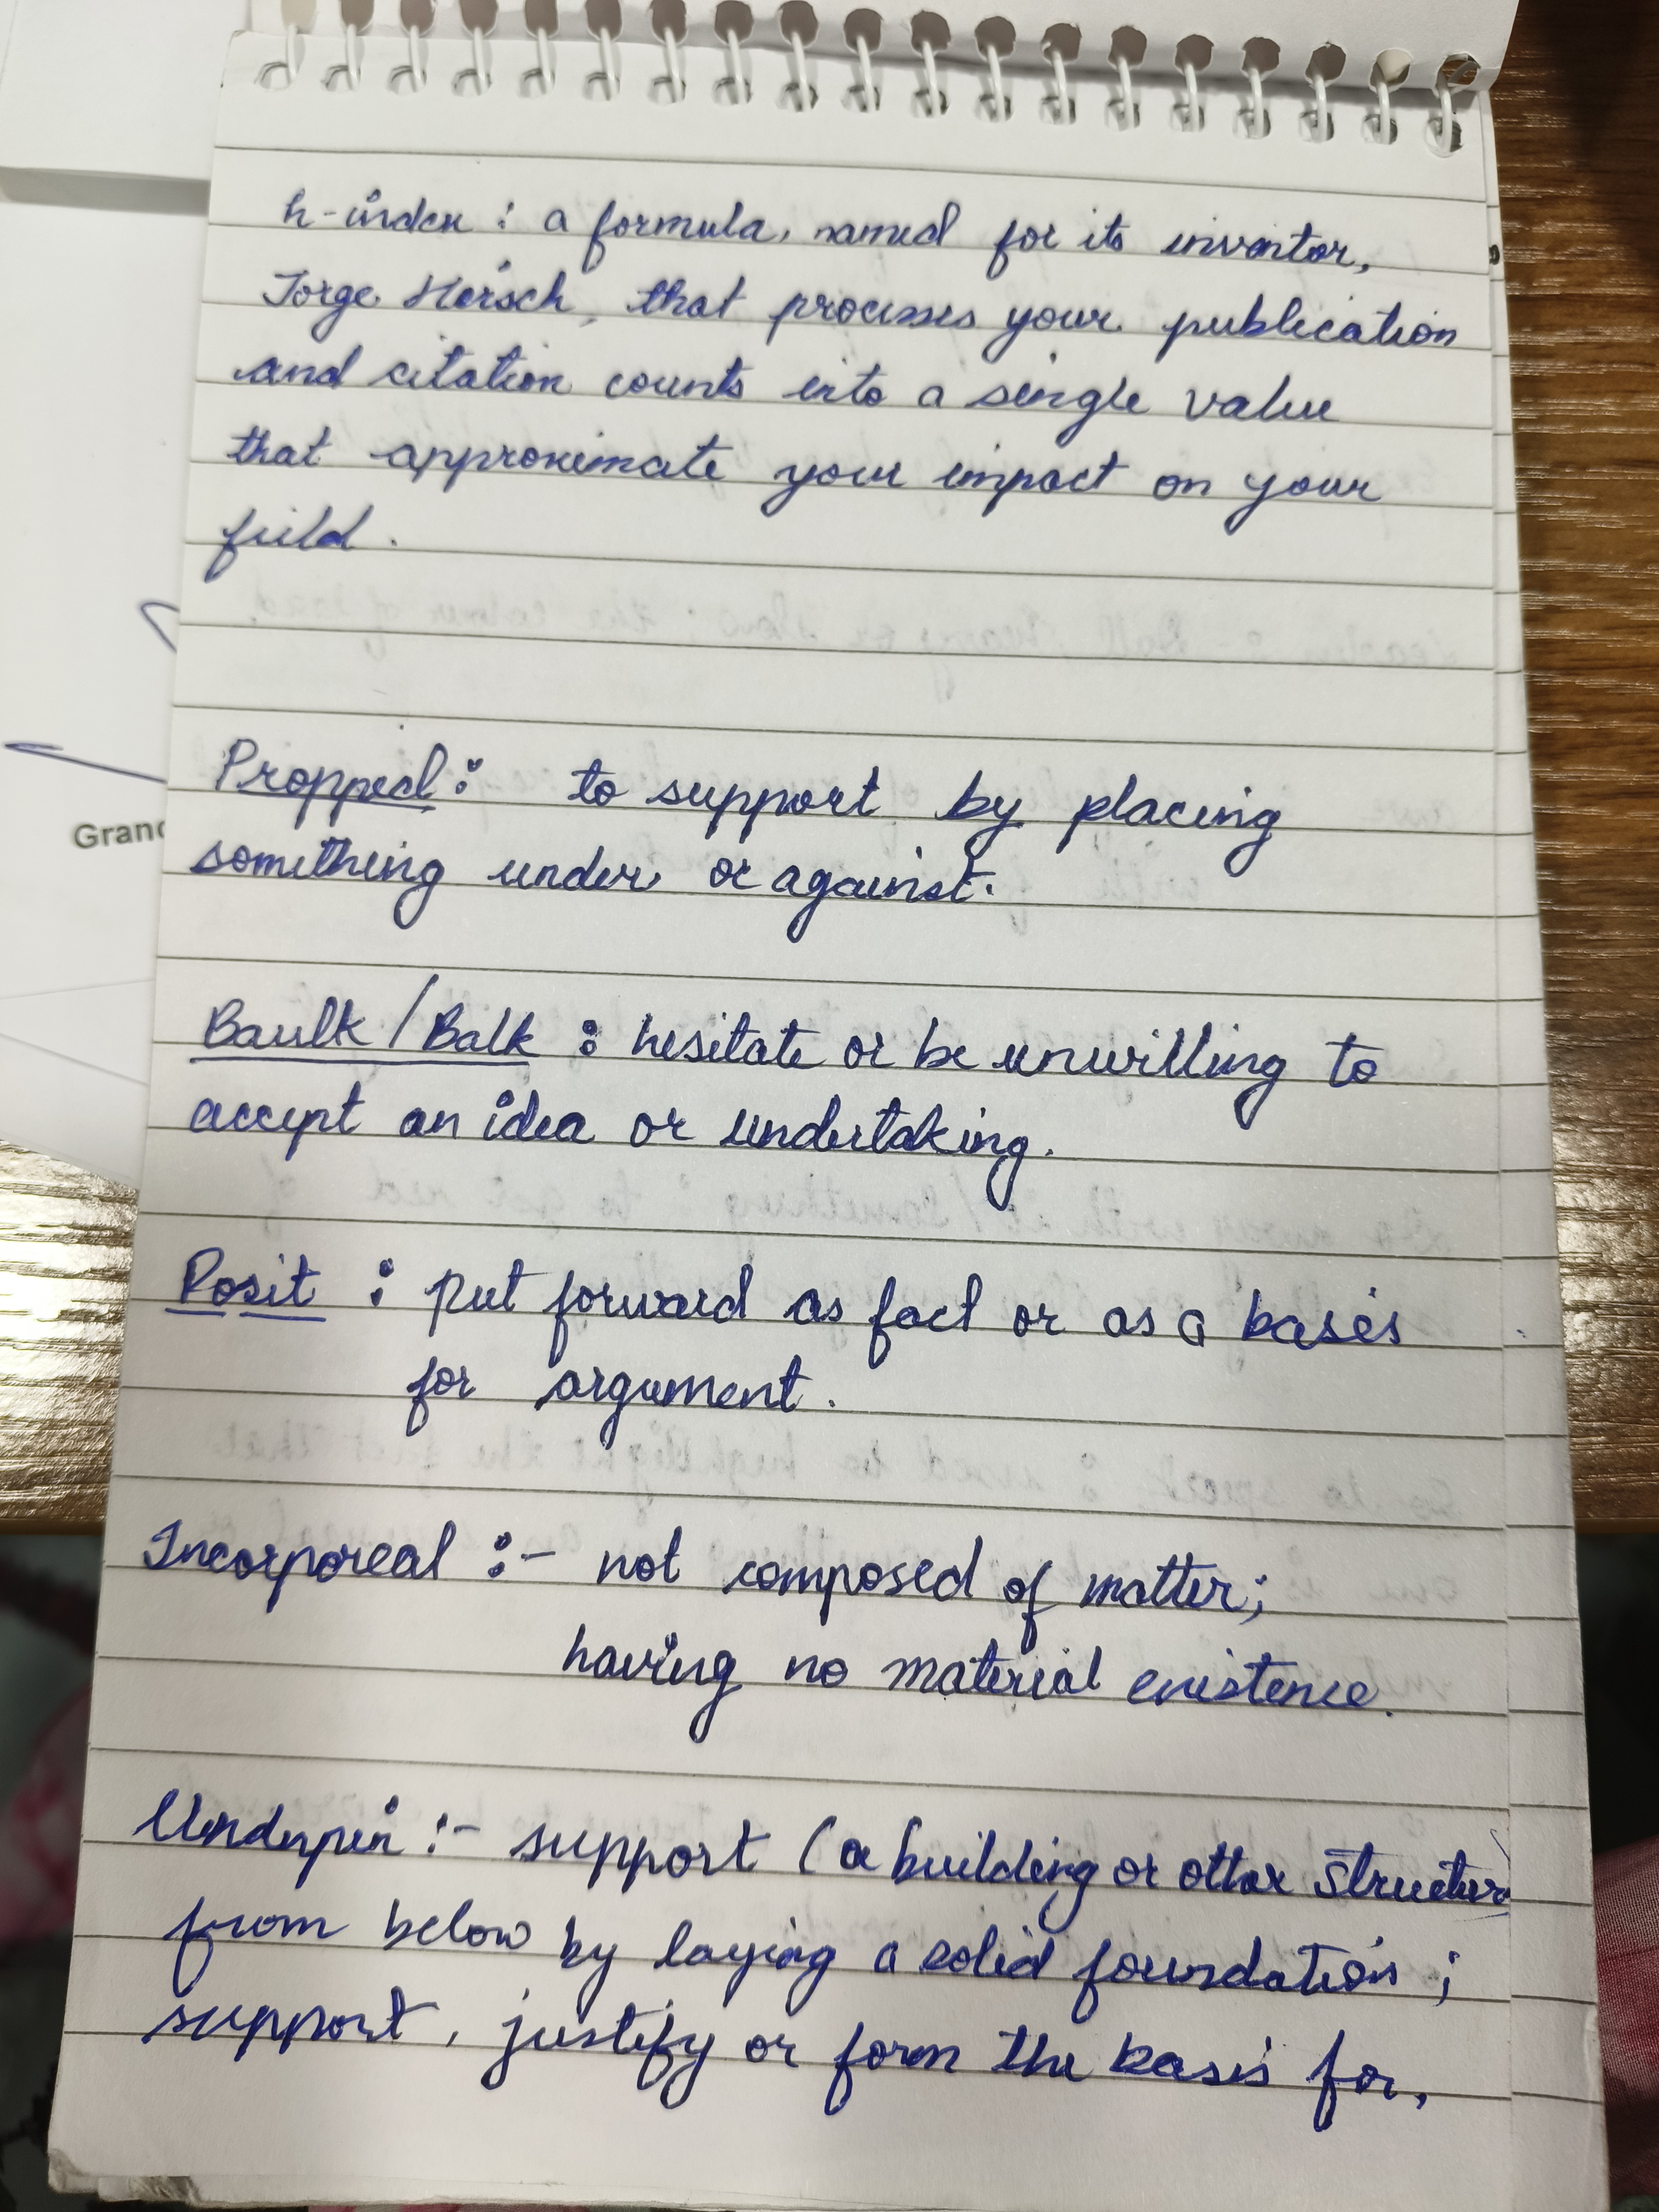 h-index : a formula, named for its inventor,
Jorge Hirsch, that processes your publication
and citation counts into a single value
that approximate your impact on your
field.
Propped : to support by placing
something under or against.
Grand
Baulk / Balk : hesitate or be unwilling to
accept an idea or undertaking.
Posit : put forward as fact or as a basis
for argument.
Incorporeal :- not composed of matter;
having no material existence.
Underpin :- support (a building or other structure)
from below by laying a solid foundation ;
support, justify or form the basis for,